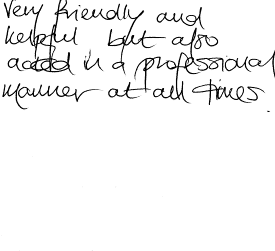 Very friendly and
helpful but also
acted in a professional
manner at all times.